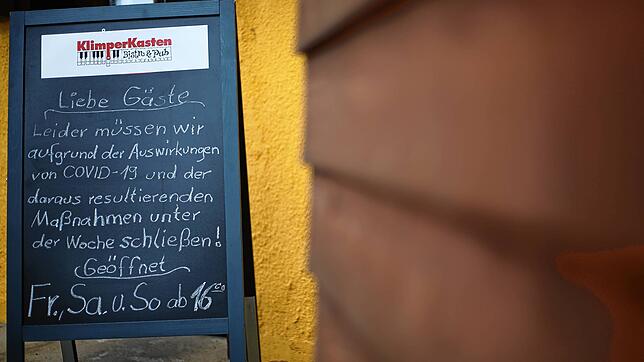 KlimperKasten
Bistro & Pub
Liebe Gäste
Leider müssen wir
aufgrund der Auswirkungen
von COVID-19 und der
daraus resultierenden
Maßnahmen unter
der Woche schließen!
Geöffnet
Fr., Sa. u. So ab 16⁰⁰